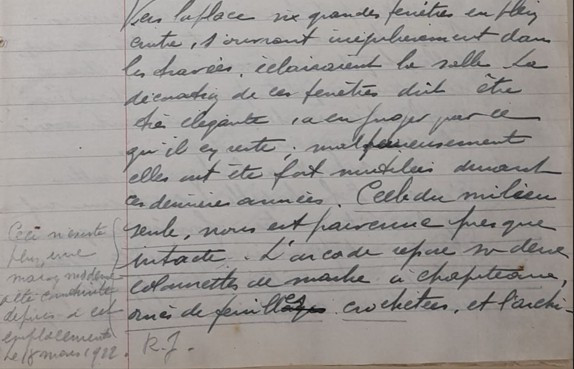 Vers la place six grandes fenêtres en plein
cintre, s'ouvrant irrégulièrement dans
les travées, éclairaient la salle. La
décoration de ces fenêtres doit être
très élégante, à en juger par ce
qu'il en reste; malheureusement
elles ont été fort mutilées durant
ces dernières années. Celle du milieu
seule, nous est parvenue presque
intacte. L'arcade repose sur deux
colonnettes de marbre à chapiteaux,
ornés de feuilles crochetées, et l'archi-
Ceci n'existe
plus, une
maison moderne
a été construite
depuis à cet
emplacement
le 18 mars 1922.
R. J.